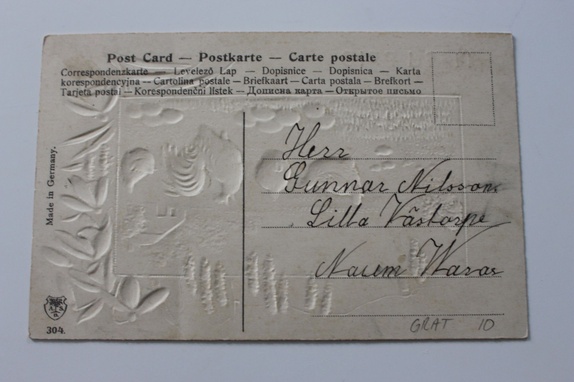 Post Card — Postkarte — Carte postale
Correspondenzkarte — Levelező Lap — Dopisnice — Dopisnica — Karta
korespondencyjna — Cartolina postale — Briefkaart — Carta postala — Brefkort —
Tarjeta postal — Korespondenční lístek — Дописна карта — Открытое письмо
Made in Germany.
Herr
Gunnar Nilsson
Lilla Västorpe
Waras
304.
GRAT 10